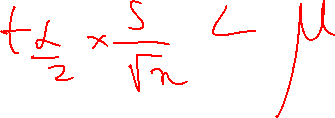 t α/2 × S/√n < μ